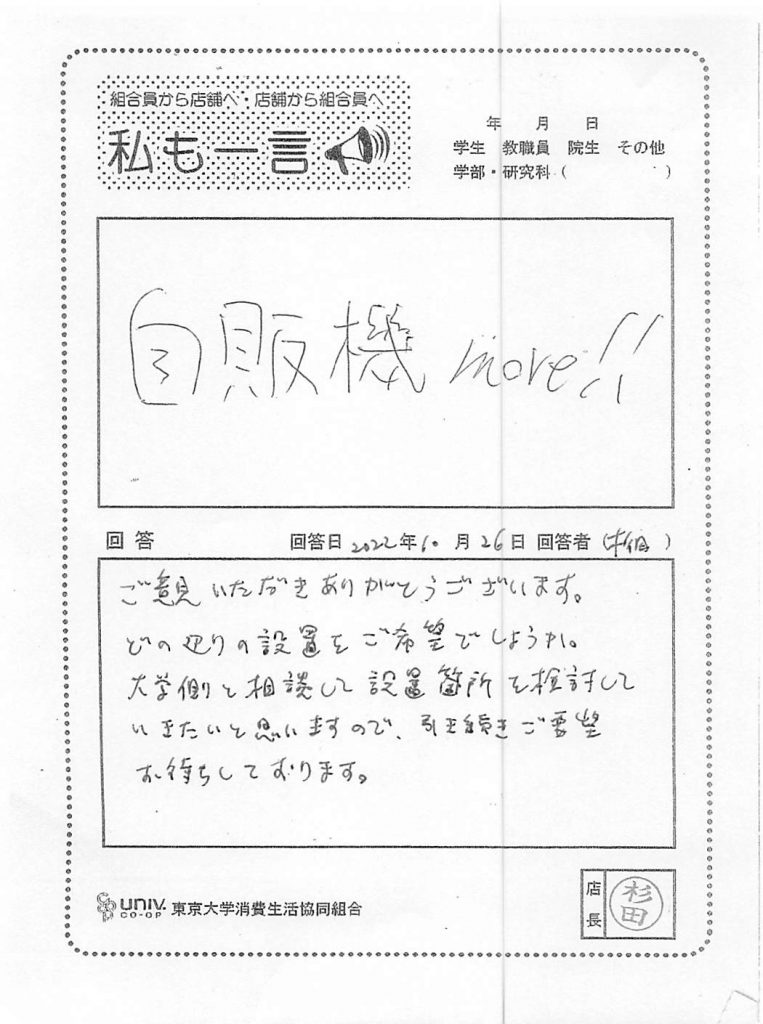 組合員から店舗へ・店舗から組合員へ
私も一言
年 月 日
学生 教職員 院生 その他
学部・研究科( )
自販機 more!!
回答 回答日 2022年10月26日 回答者( )
ご意見いただきありがとうございます。
どの辺りの設置をご希望でしょうか。
大学側と相談して設置箇所を検討して
いきたいと思いますので、引き続きご要望
お待ちしております。
CO-OP UNIV. CO-OP 東京大学消費生活協同組合
店長 杉田